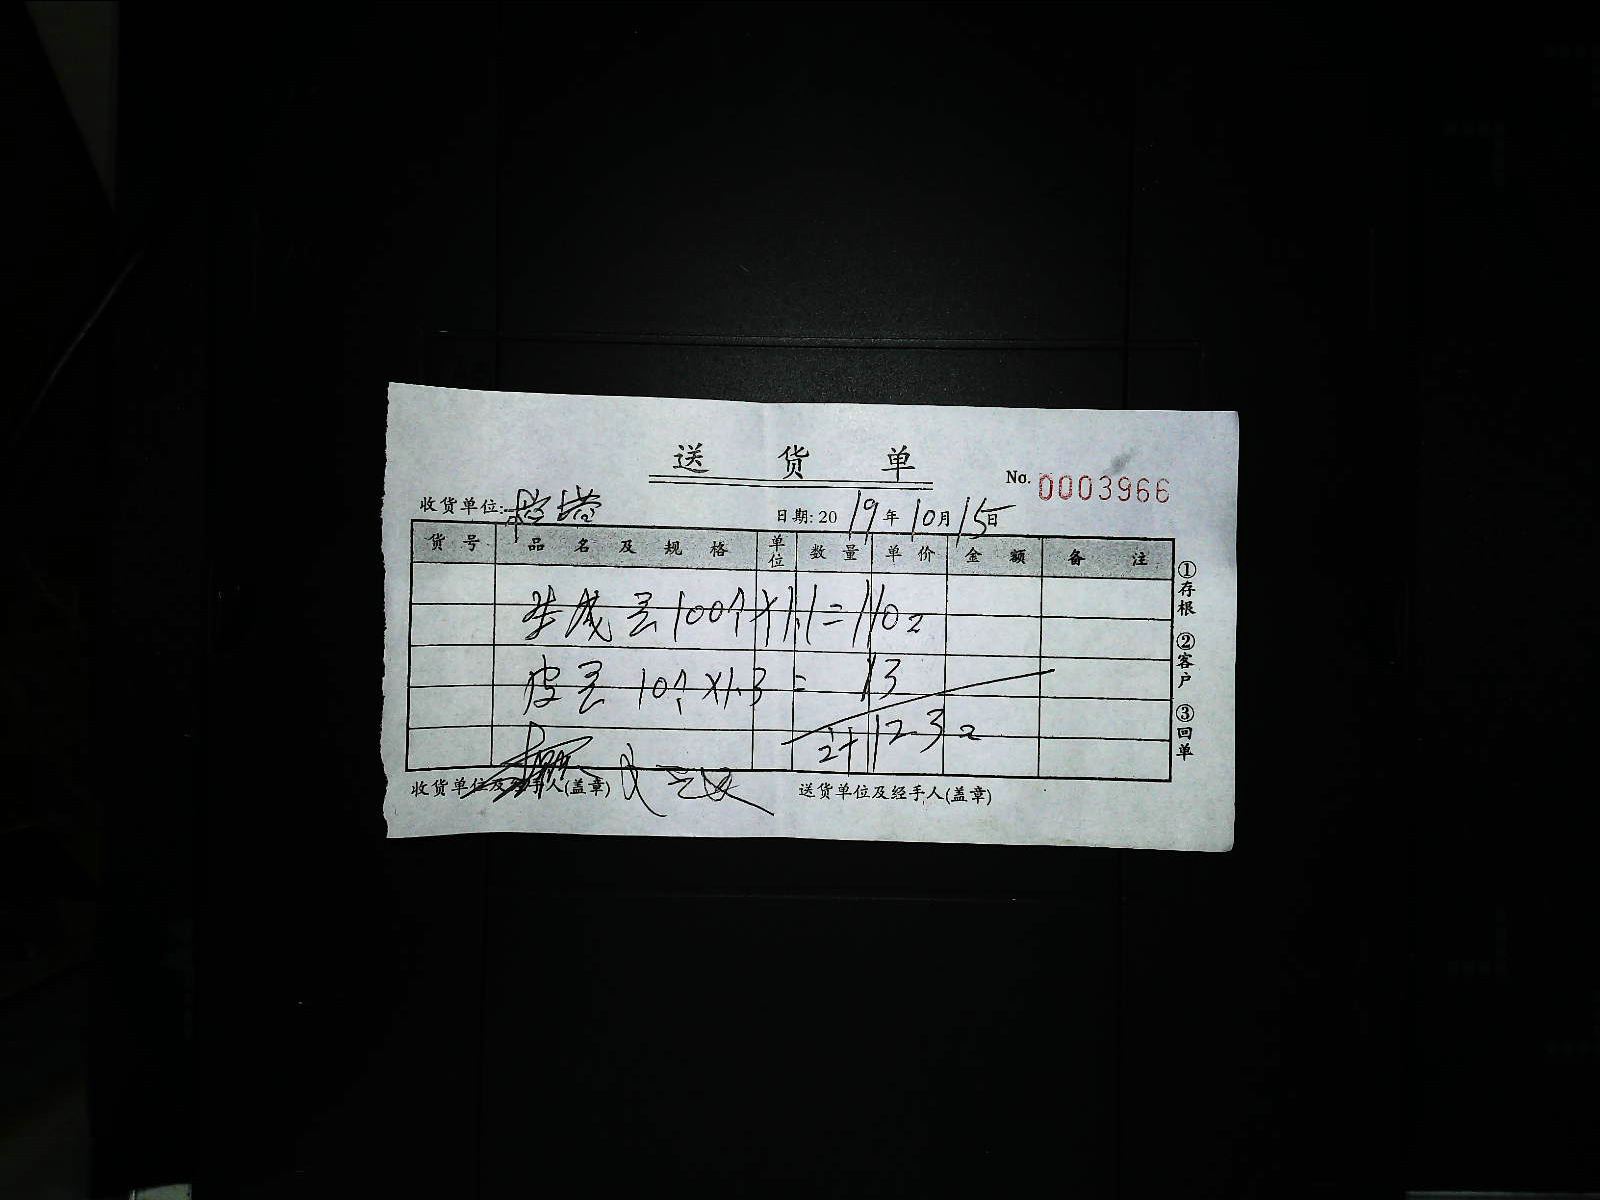 送 货 单
No. 0003966
收货单位:
日期: 2019年10月15日
货 号 品 名 及 规 格 单位 数 量 单 价 金 额 备 注
100个×1.1=110元
皮蛋 10个×1.3 = 13
计 123元
收货单位及经手人(盖章) 送货单位及经手人(盖章)
①存根 ②客户 ③回单